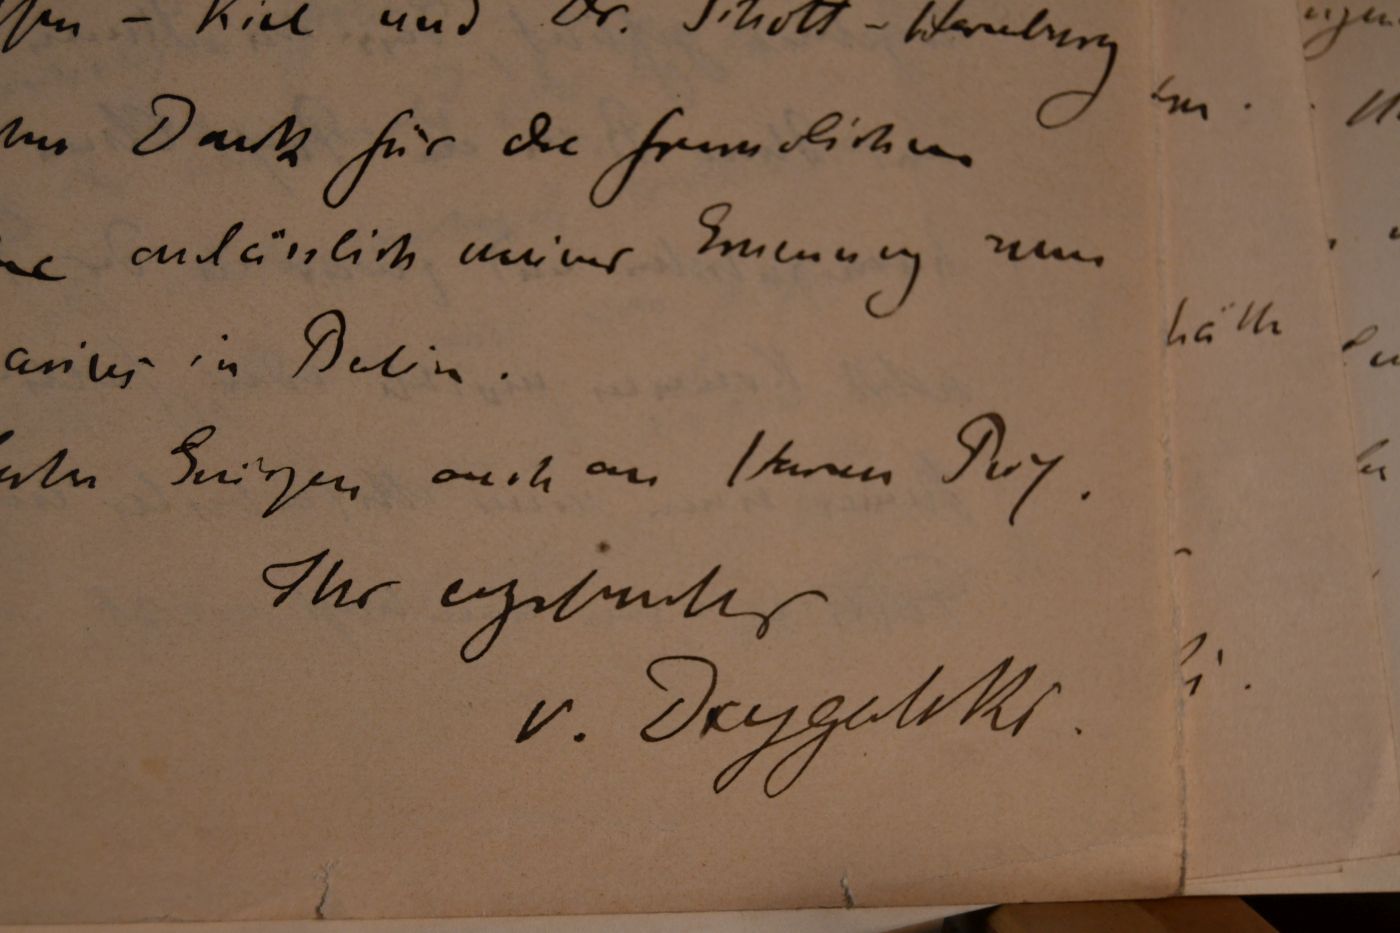 Kiel und Dr. Schott - Hamburg
Dank für die freundlichen
anlässlich meiner Ernennung zum
in Berlin.
Grüßen auch an Herrn Prof.
Ihr ergebenster
v. Drygalski.
hätte